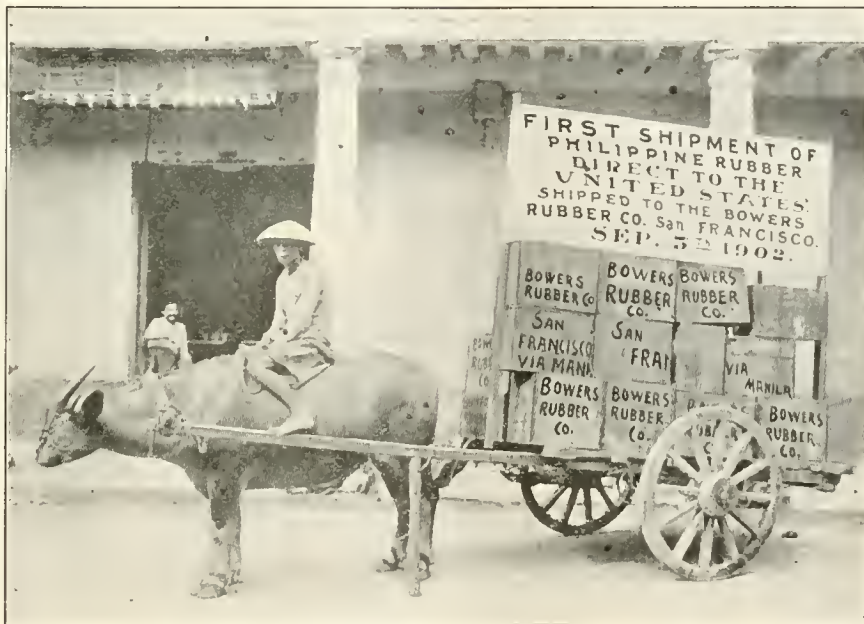 FIRST SHIPMENT OF
PHILIPPINE RUBBER
DIRECT TO THE
UNITED STATES.
SHIPPED TO THE BOWERS
RUBBER CO. San FRANCISCO.
SEP. 5TH 1902.
BOWERS
RUBBER Co
BOWERS
RUBBER
Co.
BOWERS
RUBBER
Co.
SAN
FRANCISCO
VIA MANI
SAN
FRAN
VIA
MANILA
BOWERS
RUBBER
Co.
BOWERS
RUBBER
Co.
BOWERS
RUBBER
Co.